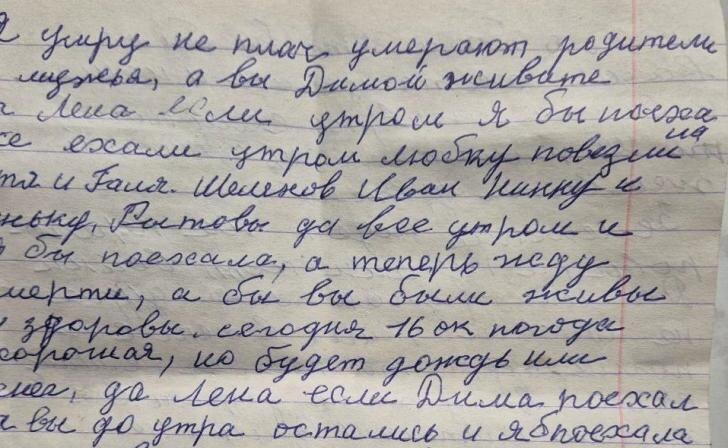 я умру не плач умерают родители
мужья, а вы Димой живите
Лена если утром я бы поеха
ла
се ехали утром любку повезли
тя и Галя. Шеленов Иван Нинку и
ньку, Рытовы да все утром и
я бы поехала, а теперь жду
мерти, а бы вы были живы
и здоровы. сегодня 16 ок погода
хорошая, но будет дождь или
снег, да Лена если Дима поехал
а вы до утра остались и я б поехала